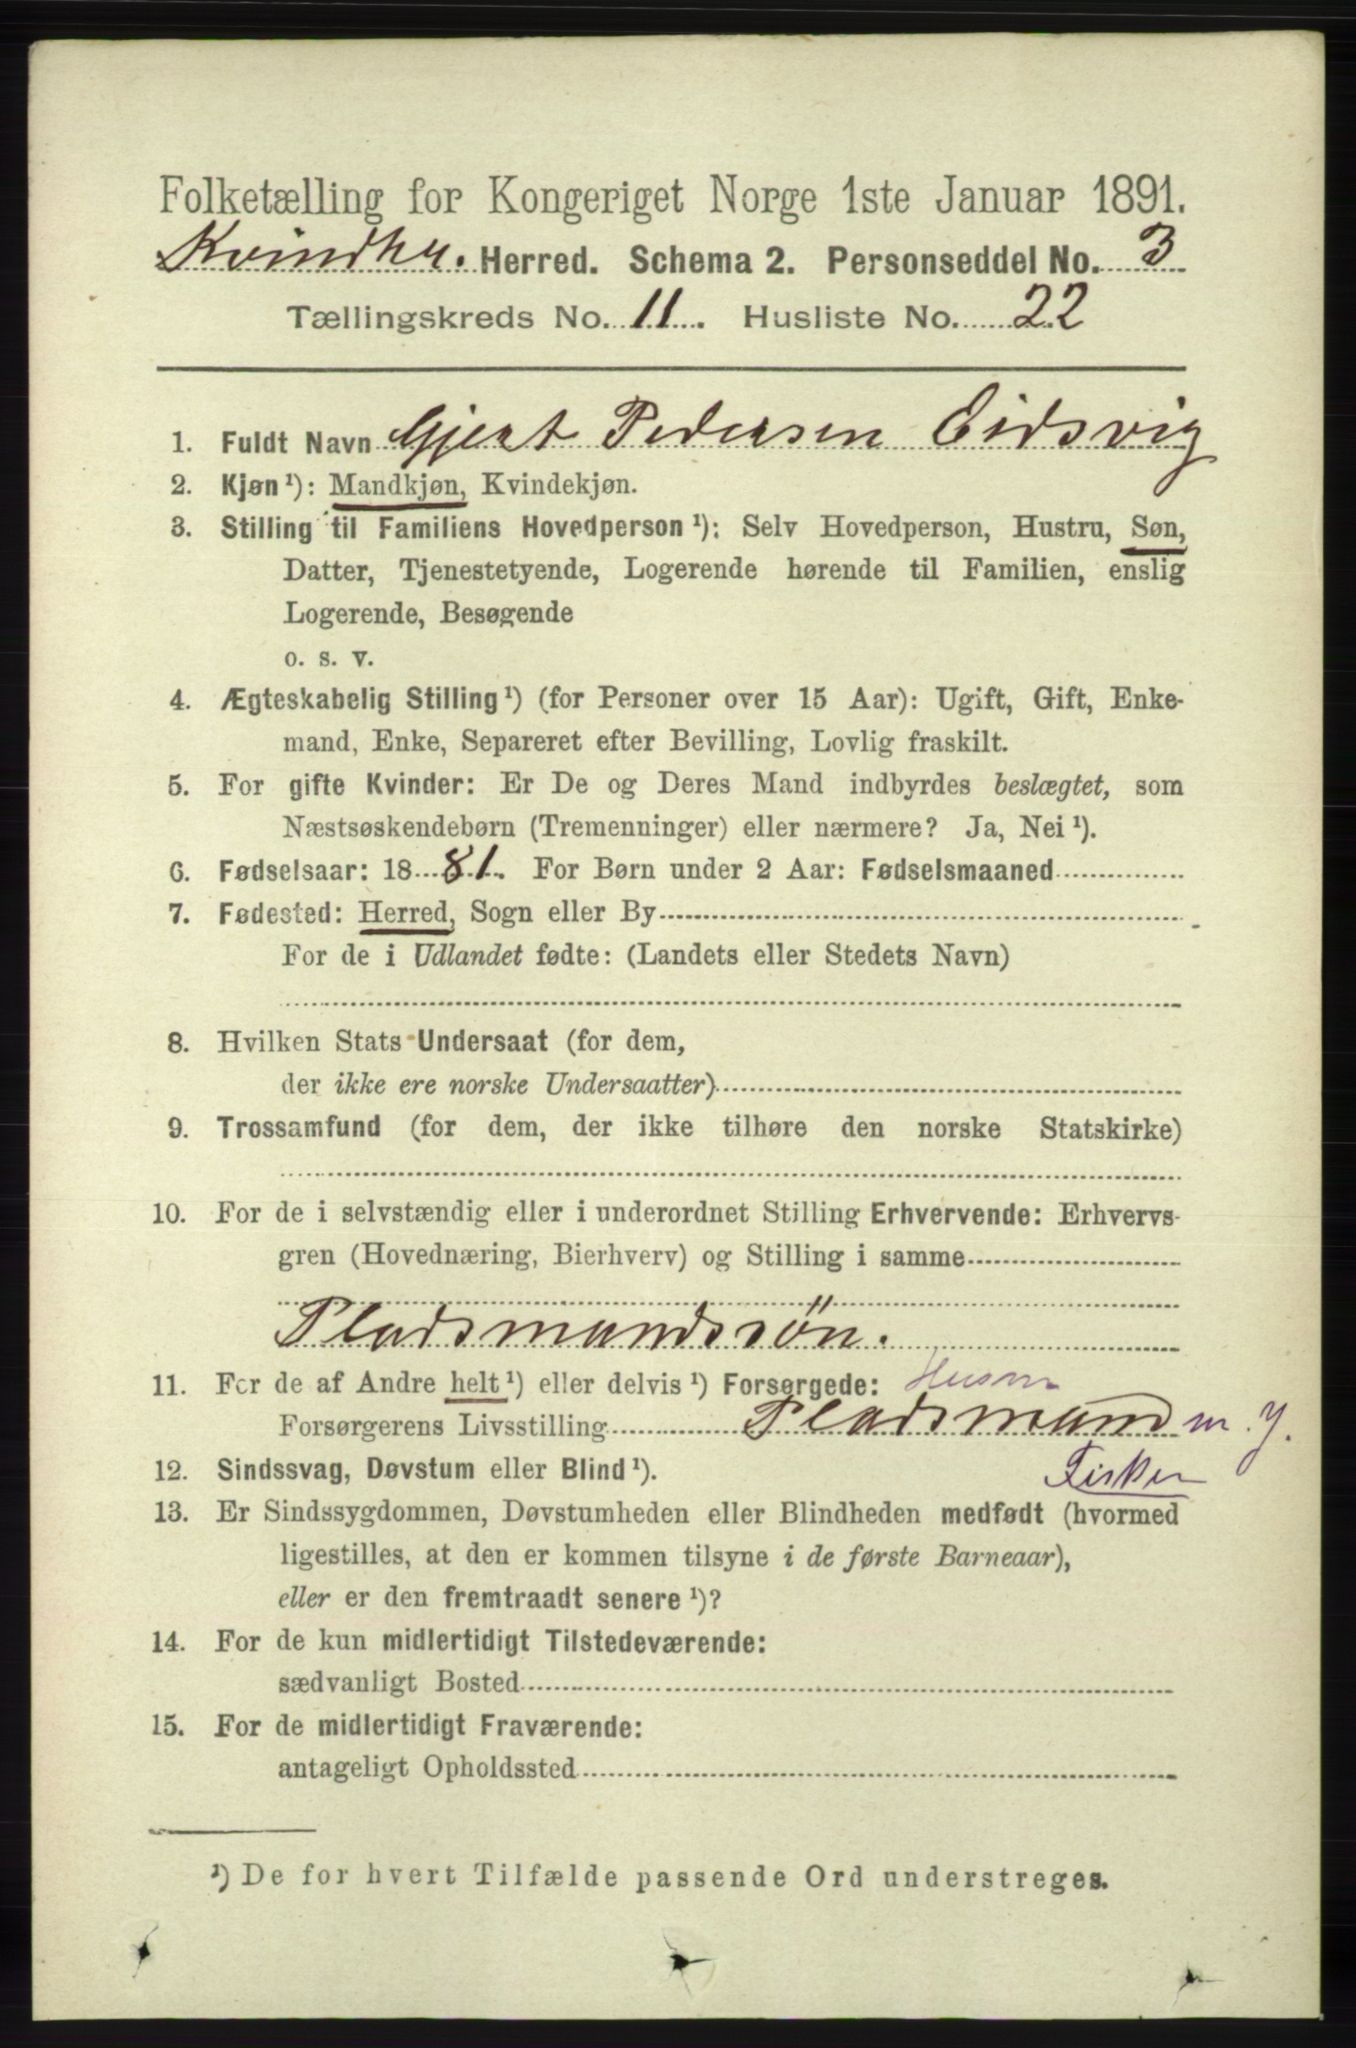 Folketælling for Kongeriget Norge 1ste Januar 1891.
Kvindhr. Herred. Schema 2. Personseddel No. 3
Tællingskreds No. 11. Husliste No. 22
1. Fuldt Navn Gjert Pedersen Eidsvig
2. Kjøn ¹): Mandkjøn, Kvindekjøn.
3. Stilling til Familiens Hovedperson ¹): Selv Hovedperson, Hustru, Søn,
Datter, Tjenestetyende, Logerende hørende til Familien, enslig
Logerende, Besøgende
o. s. v.
4. Ægteskabelig Stilling ¹) (for Personer over 15 Aar): Ugift, Gift, Enke-
mand, Enke, Separeret efter Bevilling, Lovlig fraskilt.
5. For gifte Kvinder: Er De og Deres Mand indbyrdes beslægtet, som
Næstsøskendebørn (Tremenninger) eller nærmere? Ja, Nei ¹).
6. Fødselsaar: 1881. For Børn under 2 Aar: Fødselsmaaned
7. Fødested: Herred, Sogn eller By
For de i Udlandet fødte: (Landets eller Stedets Navn)
8. Hvilken Stats Undersaat (for dem,
der ikke ere norske Undersaatter)
9. Trossamfund (for dem, der ikke tilhøre den norske Statskirke)
10. For de i selvstændig eller i underordnet Stilling Erhvervende: Erhvervs-
gren (Hovednæring, Bierhverv) og Stilling i samme
Pladsmandssön.
11. For de af Andre helt ¹) eller delvis ¹) Forsørgede: Husm
Forsørgerens Livsstilling Pladsmand m. J.
12. Sindssvag, Døvstum eller Blind ¹). Fisker
13. Er Sindssygdommen, Døvstumheden eller Blindheden medfødt (hvormed
ligestilles, at den er kommen tilsyne i de første Barneaar),
eller er den fremtraadt senere ¹)?
14. For de kun midlertidigt Tilstedeværende:
sædvanligt Bosted
15. For de midlertidigt Fraværende:
antageligt Opholdssted
¹) De for hvert Tilfælde passende Ord understreges.